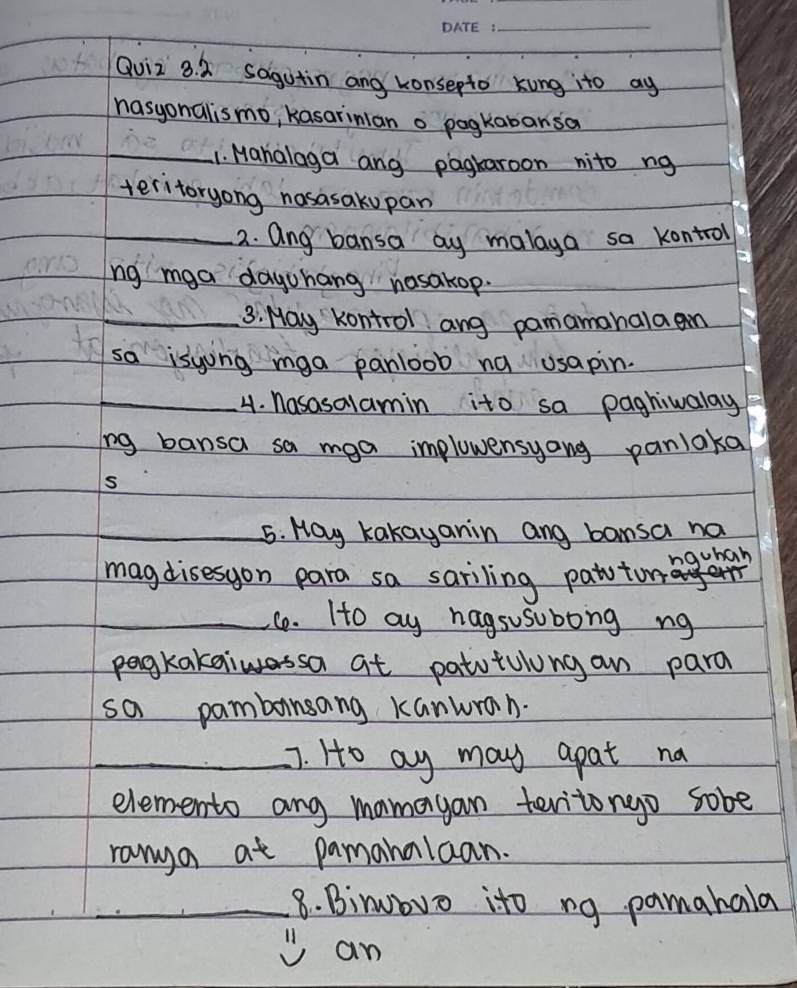 DATE :
Quiz 3.2 sagutin ang konsepto kung ito ay
nasyonalismo, kasarinlan o pagkabansa
1. Mahalaga ang pagkaroon nito ng
teritoryong nasasakupan
2. Ang bansa ay malaya sa kontrol
ng mga dayuhang nasakop.
3. May kontrol ang pamamahalaan
sa isyung mga panloob na usapin.
4. nasasalamin ito sa paghiwalay
ng bansa sa mga impluwensyang panlaka
s
5. May kakayanin ang bansa na
magdisesyon para sa sariling patutunnguhan
6. Ito ay nagsusubong ng
pagkakaiwassa at patutulungan para
sa pambansang kanluran.
7. Ito ay may apat na
elemento ang mamayan teritoryo sobe
ranya at pamahalaan.
8. Binubuo ito ng pamahala
an